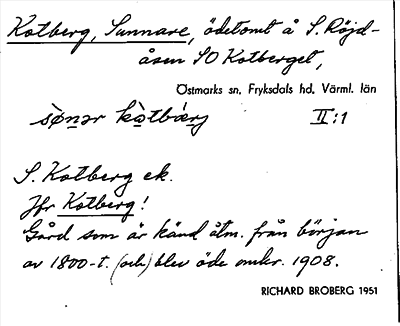 Kotberg, Sunnare, ödetomt å S. Röjd-
åsen SO Kotberget,
Östmarks sn, Fryksdals hd, Värml. län
II:1
S. Kotberg ek.
Jfr Kotberg!
Gård som är känd åtm. från början
av 1800-t. (och) blev öde omkr. 1908.
RICHARD BROBERG 1951